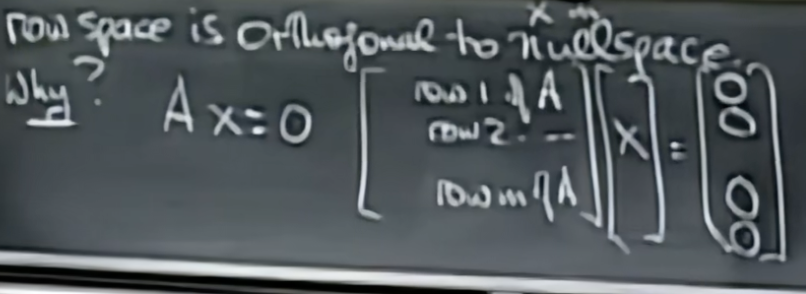 x in
row space is orthogonal to nullspace.
Why? Ax=0 [row 1 of A] [x] = [0
row 2. -- 0
row m of A 0
0]